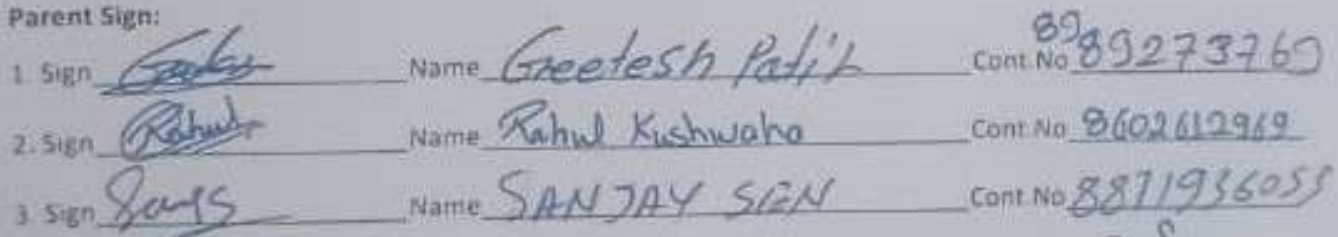 Parent Sign:
1. Sign Name Greetesh Patil Cont.No 8989273769
2. Sign Rahul Name Rahul Kushwaha Cont.No 8602612969
3 Sign Name SANJAY SEN Cont.No 8871936055